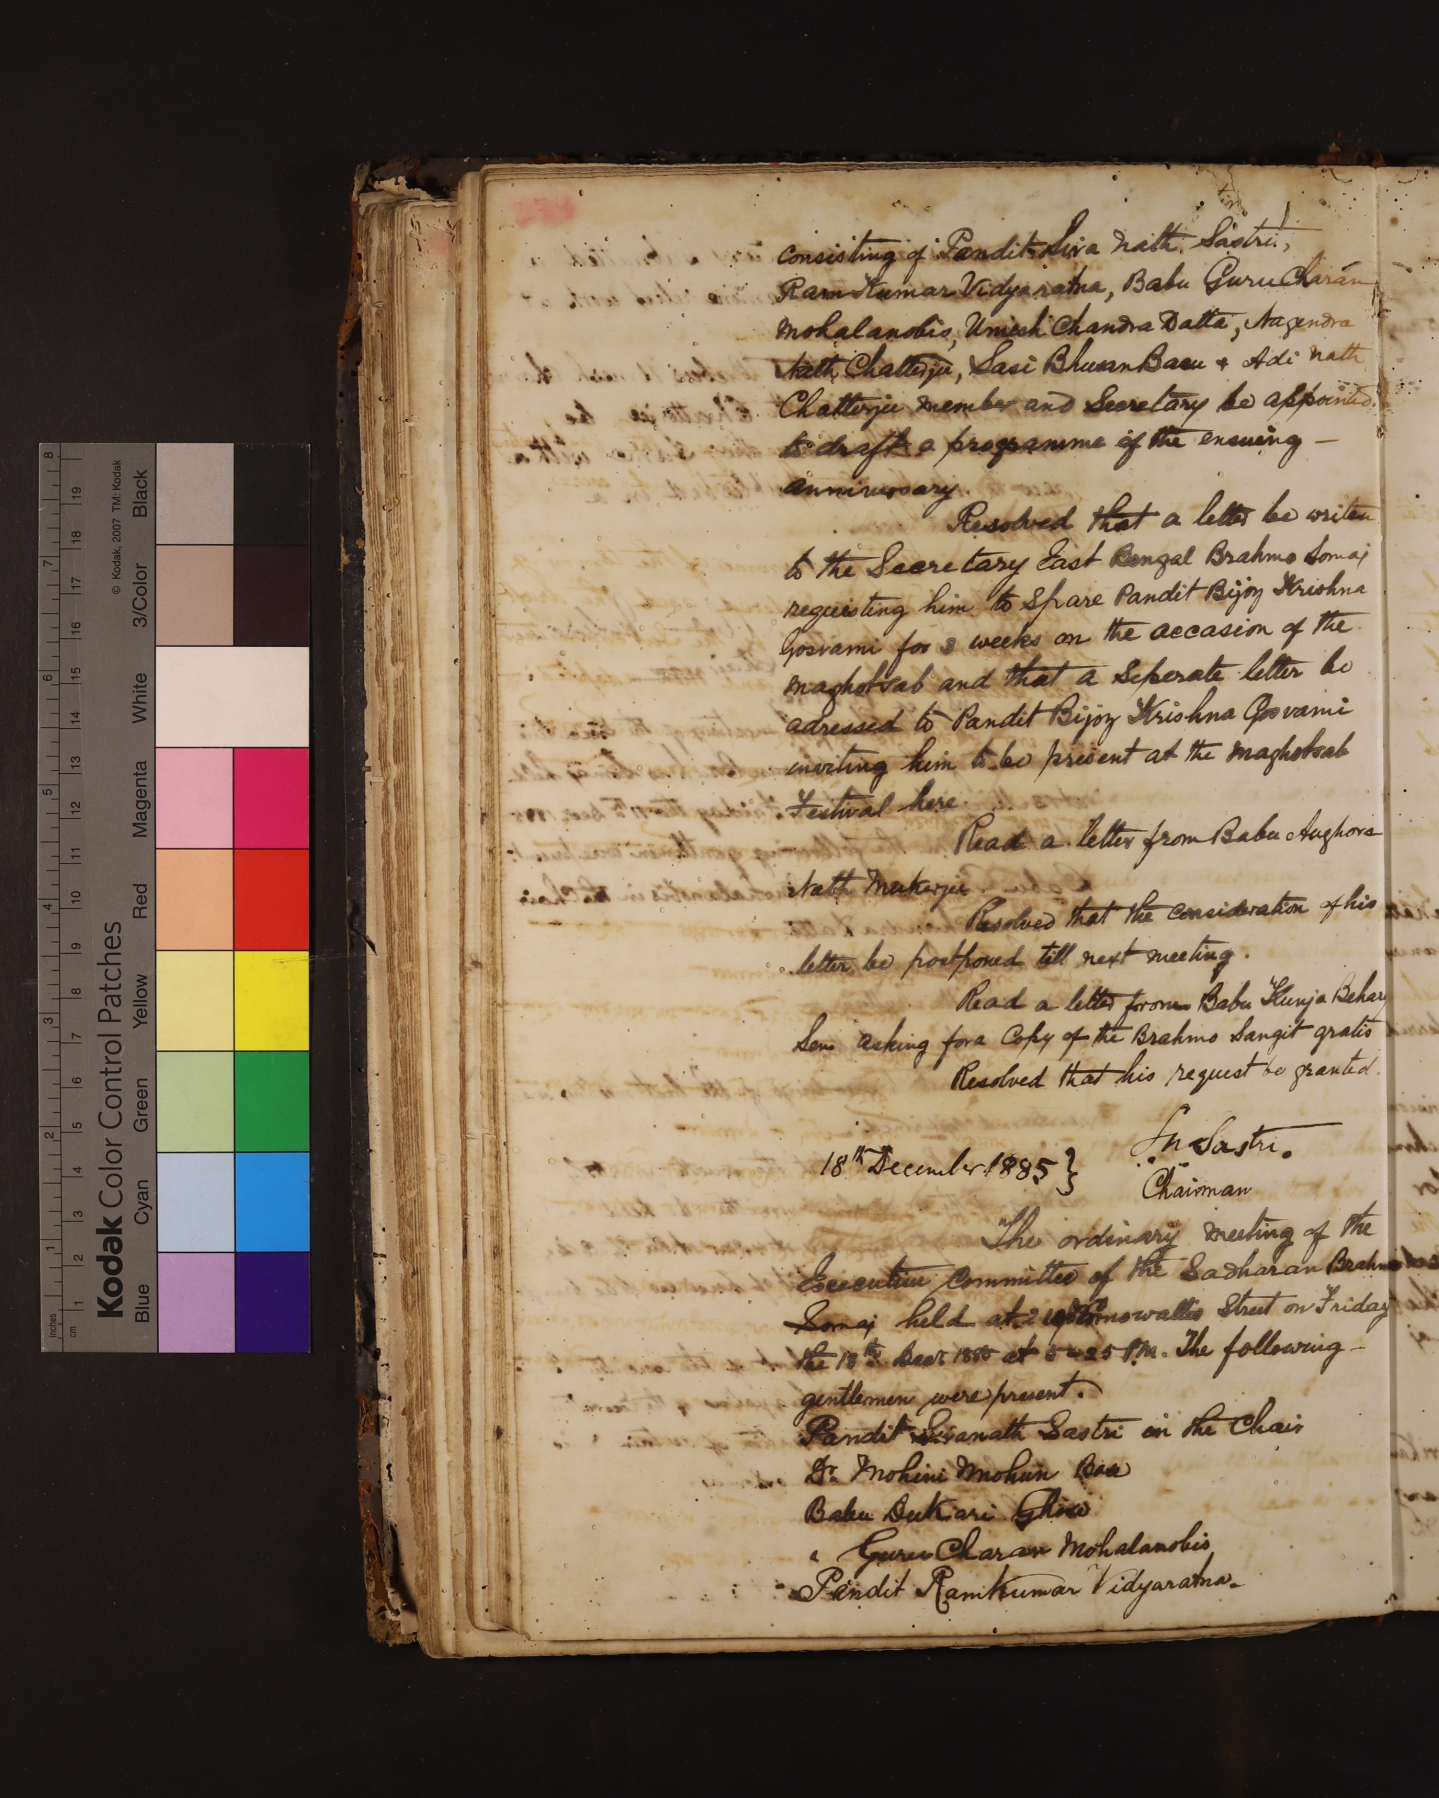 consisting of Pandit Siva Nath Sastri,
Ram Kumar Vidyaratna, Babu Guru Charan
Mohalanobis, Umesh Chandra Datta, Nagendra
Nath Chatterjee, Sasi Bhusan Basu & Adi Nath
Chatterjee member and Secretary be appointed
to draft a programme of the ensuing —
anniversary.
Resolved that a letter be writen
to the Secretary East Bengal Brahmo Somaj
requisting him to spare Pandit Bijoy Krishna
Gosvami for 3 weeks on the accasion of the
Maghotsab and that a seperate letter be
adressed to Pandit Bijoy Krishna Gosvami
inviting him to be present at the Maghotsab
Festival here.
Read a letter from Babu Aughora
Nath Mukerjee.
Resolved that the consideration of his
letter be postponed till next meeting.
Read a letter from Babu Kunja Behary
Sen asking for a Copy of the Brahmo Sangit gratis
Resolved that his request be granted.
18th December 1885 } Sn Sastri.
Chairman
The ordinary meeting of the
Executive Committee of the Sadharan Brahmo
Somaj held at 210 Cornowallis Street on Friday
the 18th Decr 1885 at 5-25 P.M. The following —
gentlemen were present.
Pandit Sivanath Sastri in the Chair
Dr. Mohini Mohun Bose
Babu Dukari Ghose
" Guru Charan Mohalanobis
Pandit Ramkumar Vidyaratna.
inches 1 2 3 4 5 6 7 8
cm 1 2 3 4 5 6 7 8 9 10 11 12 13 14 15 16 17 18 19
Kodak Color Control Patches
© Kodak, 2007 TM: Kodak
Blue Cyan Green Yellow Red Magenta White 3/Color Black